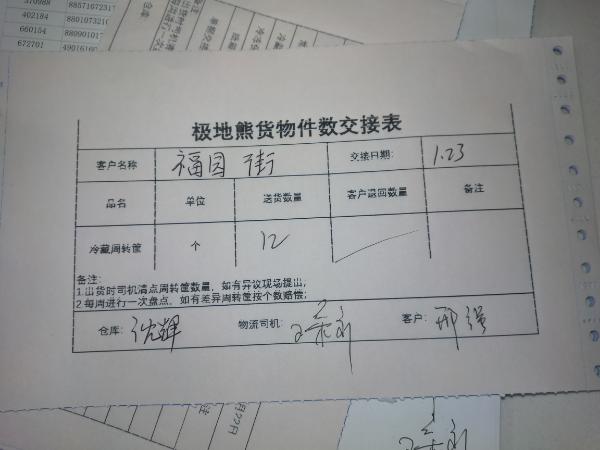 370988 8857107231
402184 8801073210
660104 88090101
672701 49016160
极地熊货物件数交接表
客户名称 福园街 交接日期: 1.23
品名 单位 送货数量 客户退回数量 备注
冷藏周转筐 个 12
备注:
1.出货时司机清点周转筐数量,如有异议现场提出;
2.每周进行一次盘点,如有差异周转筐按个数赔偿;
仓库: 沈辉 物流司机: 客户: 邢强
月22日